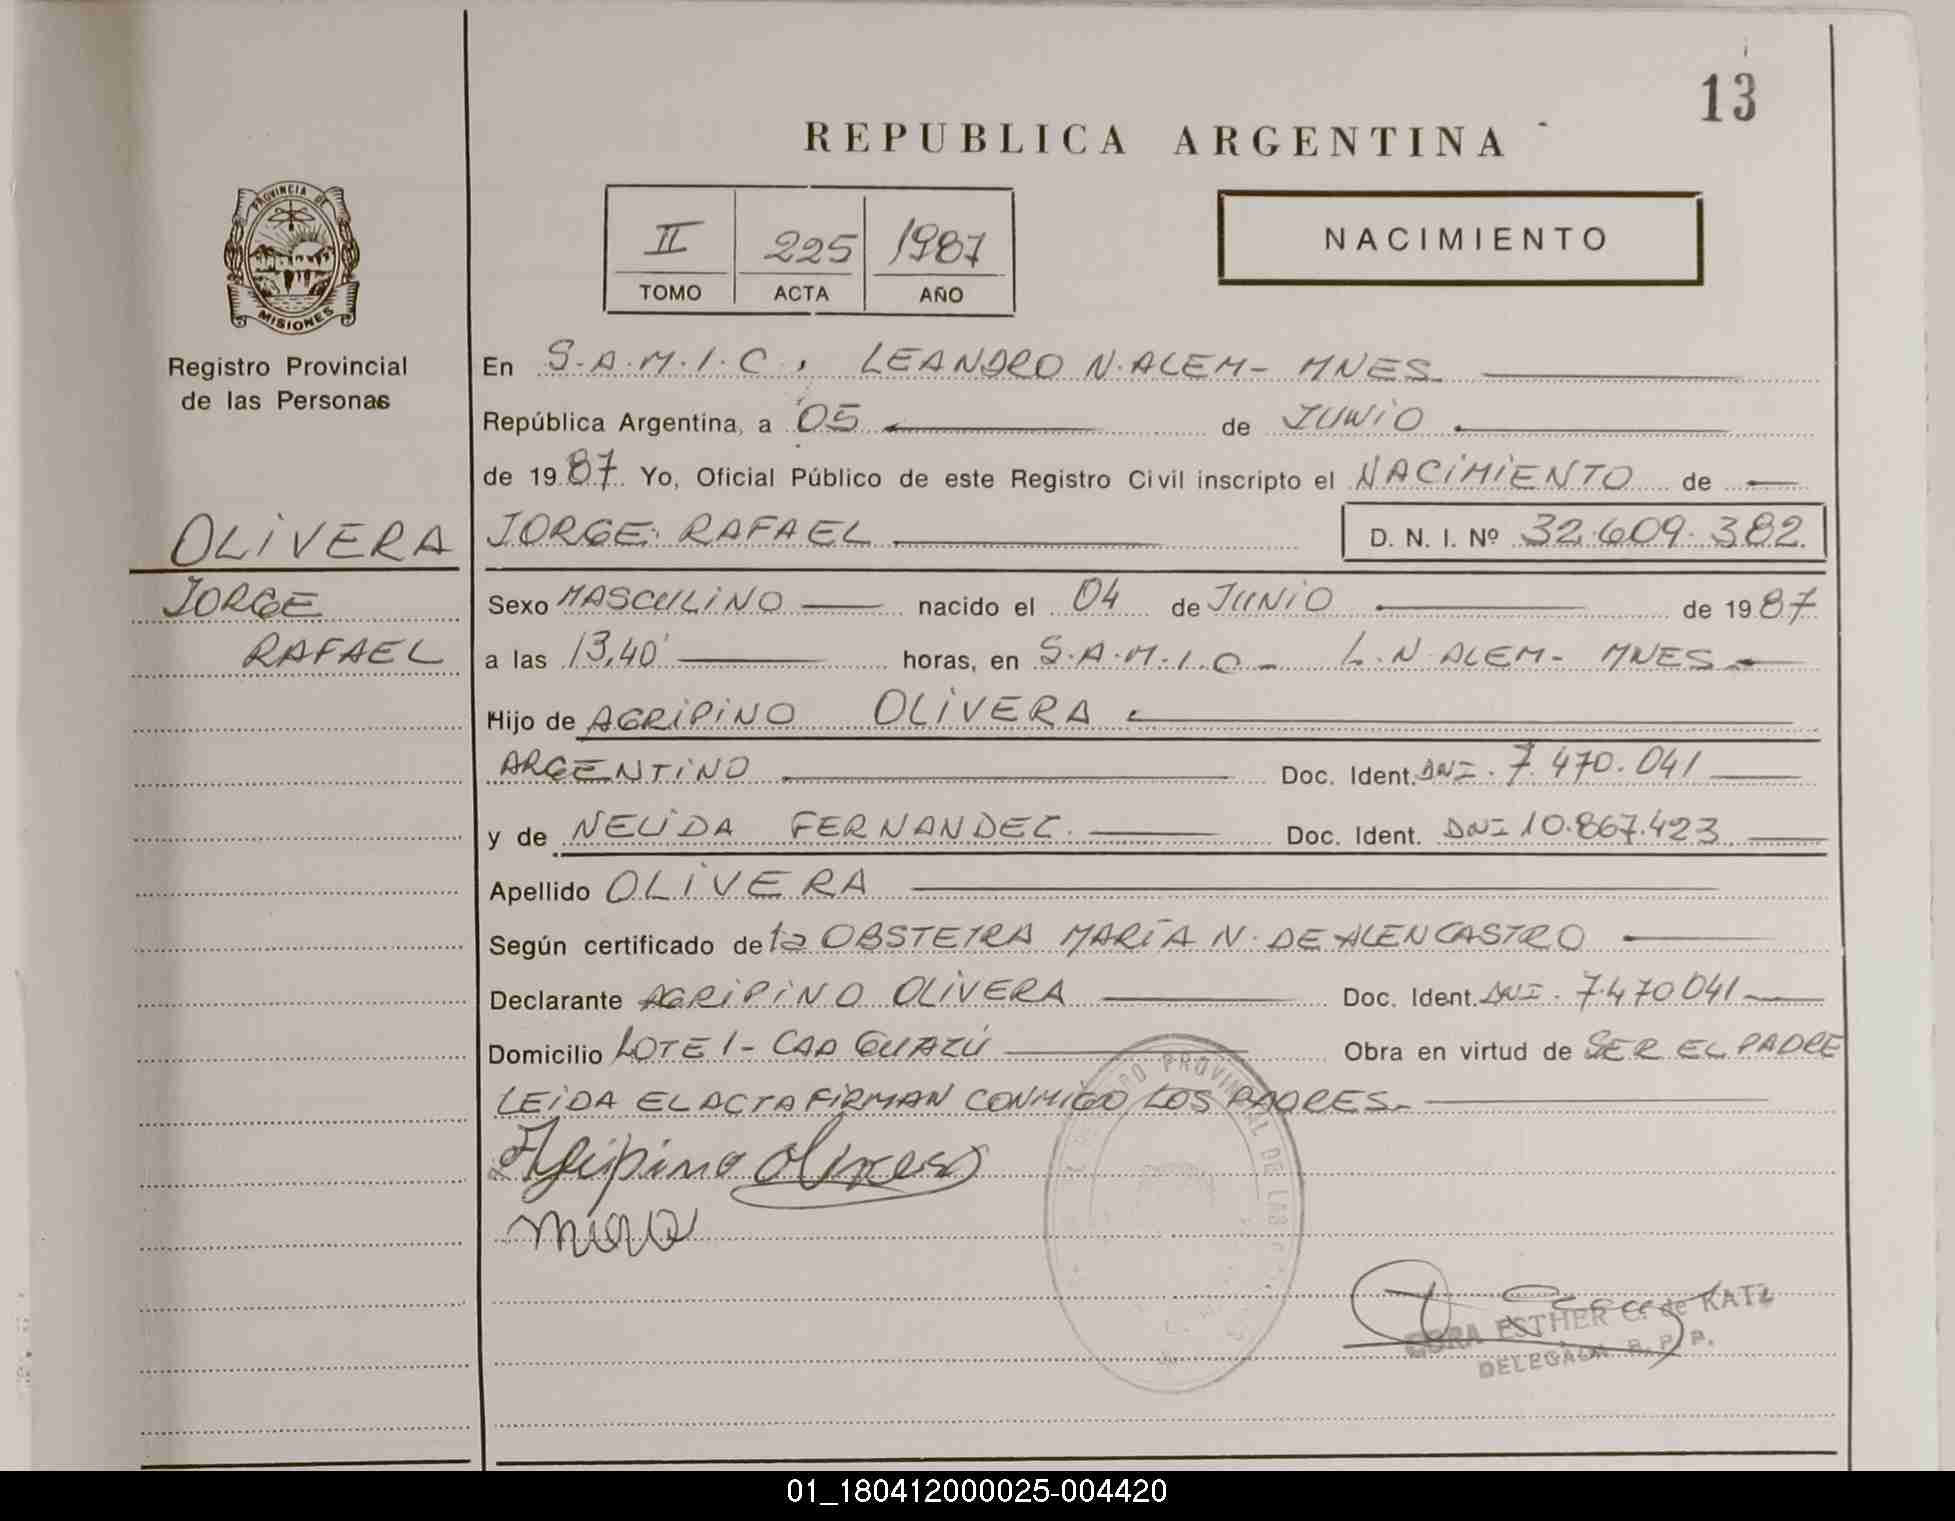 13
REPUBLICA ARGENTINA
PROVINCIA DE
MISIONES
Registro Provincial
de las Personas
II 225 1987
TOMO ACTA AÑO
NACIMIENTO
En S.A.M.I.C. LEANDRO N. ALEM - MNES
República Argentina, a 05 de JUNIO
de 1987 Yo, Oficial Público de este Registro Civil inscripto el NACIMIENTO de
OLIVERA JORGE RAFAEL D. N. I. Nº 32.609.382
JORGE
RAFAEL
Sexo MASCULINO nacido el 04 de JUNIO de 1987
a las 13,40' horas, en S.A.M.I.C - L.N ALEM - MNES
Hijo de AGRIPINO OLIVERA
ARGENTINO Doc. Ident. DNI. 7.470.041
y de NELIDA FERNANDEZ Doc. Ident. DNI 10.867.423
Apellido OLIVERA
Según certificado de la OBSTETRA MARÍA N. DE ALENCASTRO
Declarante AGRIPINO OLIVERA Doc. Ident. DNI. 7470041
Domicilio LOTE 1 - CAA GUAZÚ Obra en virtud de SER EL PADRE
LEIDA EL ACTA FIRMAN CONMIGO LOS PADRES.-
Agripino Olivera
PROVINCIAL DE LAS
ESTHER C. de KATZ
DELEGADA R. P. P.
01_180412000025-004420